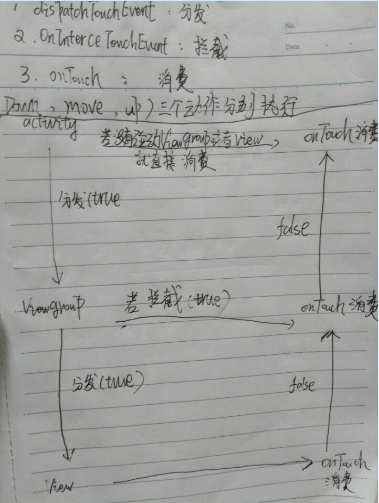 1 dispatchTouchEvent : 分发
No.
2. OnInterceTouchEvent : 拦截
Date
3. onTouch : 消费
Down, move, up) 三个动作分别执行
activity
若没有到Viewgroup或者view
就直接消费
onTouch消费
分发(true
false
Viewgroup
若拦截(true)
onTouch消费
分发(true)
false
View
onTouch
消费